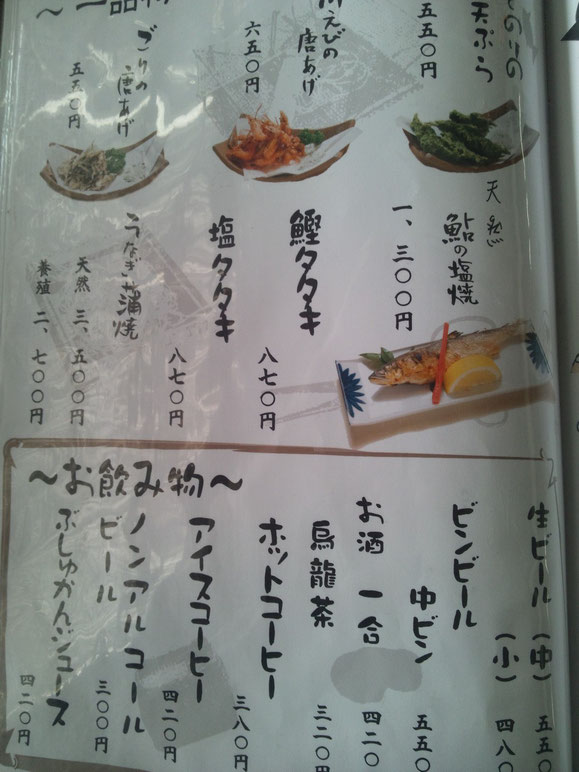 ～一品物～
のりの
天ぷら
五五〇円
川えびの
唐あげ
六五〇円
ごりの
唐あげ
五五〇円
天然
鮎の塩焼
一、三〇〇円
鰹タタキ
八七〇円
塩タタキ
八七〇円
うなぎ蒲焼
天然 三、五〇〇円
養殖 二、七〇〇円
～お飲み物～
生ビール(中) 五五〇
(小) 四八〇
ビンビール
中ビン 五五〇
お酒 一合 四二〇
烏龍茶 三二〇
ホットコーヒー 三八〇円
アイスコーヒー 四二〇円
ノンアルコール
ビール 三〇〇円
ぶしゅかんジュース 四二〇円